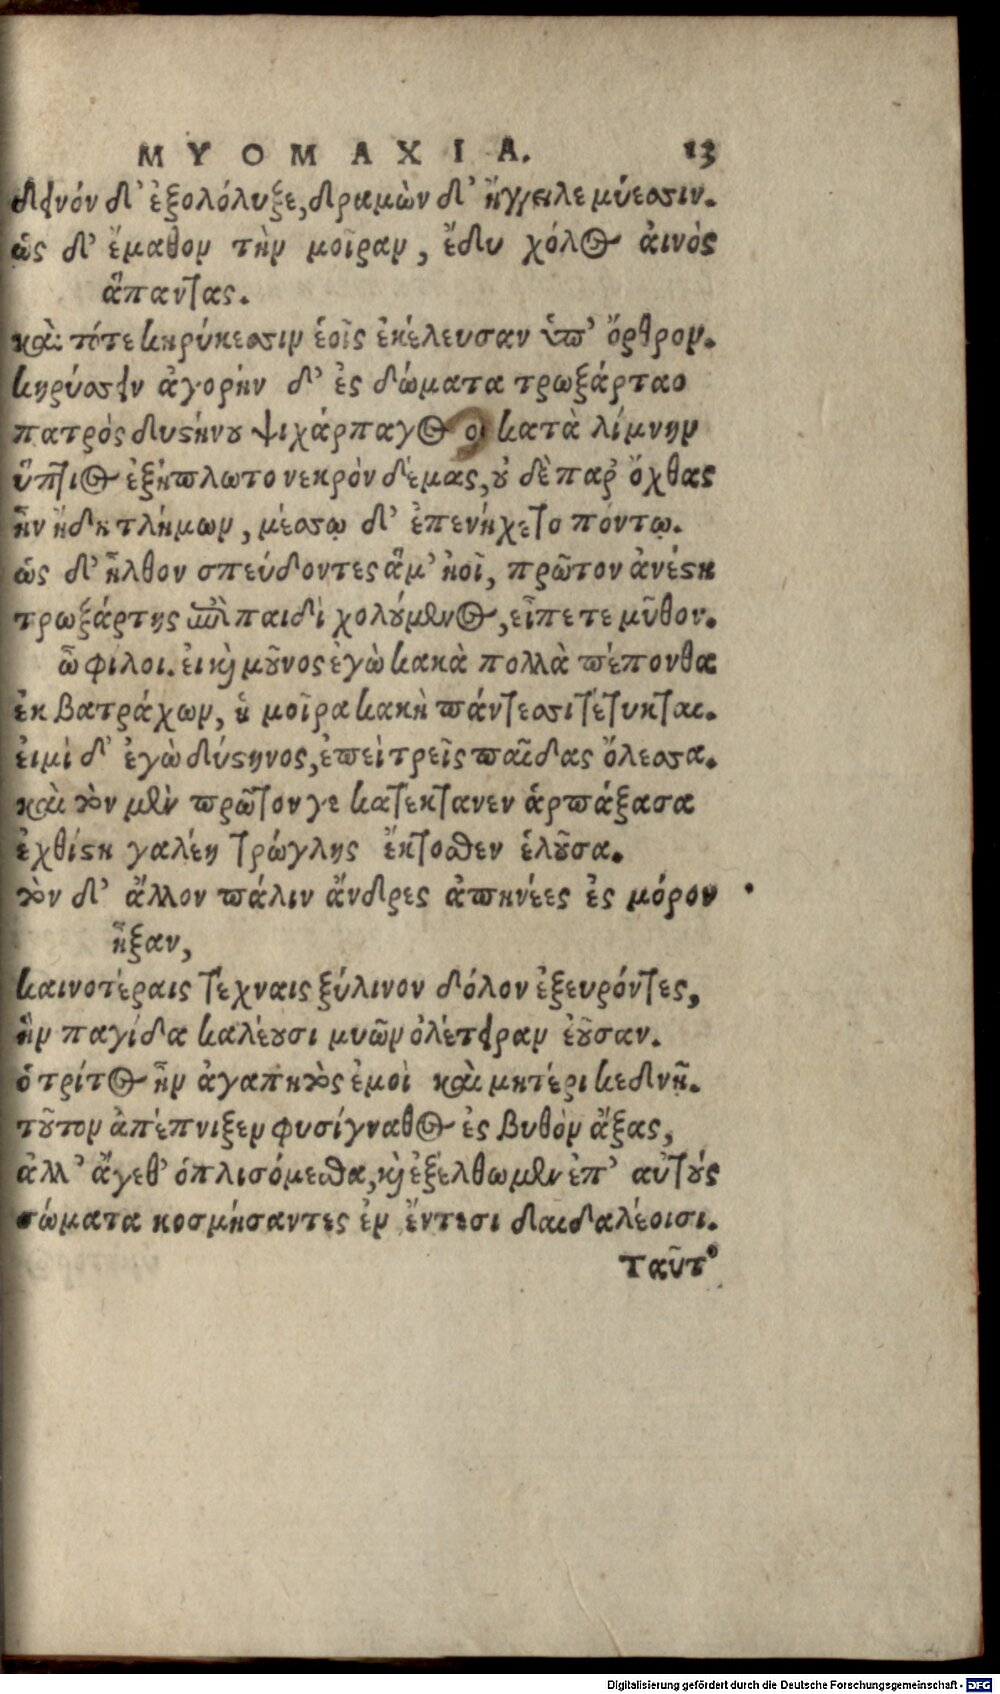 ΜΥΟΜΑΧΙΑ. 13
δεινόν δ' ἐξολόλυξε, δραμὼν δ' ἤγγειλε μύεσσιν.
ὡς δ' ἔμαθον τὴν μοῖραν, ἔδυ χόλος αἰνὸς
ἅπαντας.
καὶ τότε κηρύκεσσιν ἑοῖς ἐκέλευσαν ὑπ' ὄρθρον.
κηρύσσειν ἀγορὴν δ' ἐς δώματα τρωξάρταο
πατρὸς δυστήνου ψιχάρπαγος ὃς κατὰ λίμνην
ὕπτιος ἐξήπλωτο νεκρὸν δέμας, οὐ δὲ παρ' ὄχθας
ἦν ἤδη τλήμων, μέσσῳ δ' ἐπενήχετο πόντῳ.
ὡς δ' ἦλθον σπεύδοντες ἅμ' ἠοῖ, πρῶτον ἀνέστη
τρωξάρτης ἐπὶ παιδὶ χολούμενος, εἶπε τε μῦθον.
ὦ φίλοι. εἰ καὶ μοῦνος ἐγὼ κακὰ πολλὰ πέπονθα
ἐκ βατράχων, ἡ μοῖρα κακὴ πάντεσσι τέτυκται.
εἰμὶ δ' ἐγὼ δύστηνος, ἐπεὶ τρεῖς παῖδας ὄλεσσα.
καὶ τὸν μὲν πρῶτον γε κατέκτανεν ἁρπάξασα
ἐχθίστη γαλέη τρώγλης ἔκτοσθεν ἑλοῦσα.
τὸν δ' ἄλλον πάλιν ἄνδρες ἀπηνέες ἐς μόρον
ἦξαν,
καινοτέραις τέχναις ξύλινον δόλον ἐξευρόντες,
ἣν παγίδα καλέουσι μυῶν ὀλέτειραν ἐοῦσαν.
ὁ τρίτος ἦν ἀγαπητὸς ἐμοὶ καὶ μητέρι κεδνῇ.
τοῦτον ἀπέπνιξεν φυσίγναθος ἐς βυθὸν ἄξας,
ἀλλ' ἄγεθ' ὁπλισόμεσθα, καὶ ἐξέλθωμεν ἐπ' αὐτούς
σώματα κοσμήσαντες ἐν ἔντεσι δαιδαλέοισι.
ταῦτ'
Digitalisierung gefördert durch die Deutsche Forschungsgemeinschaft - DFG